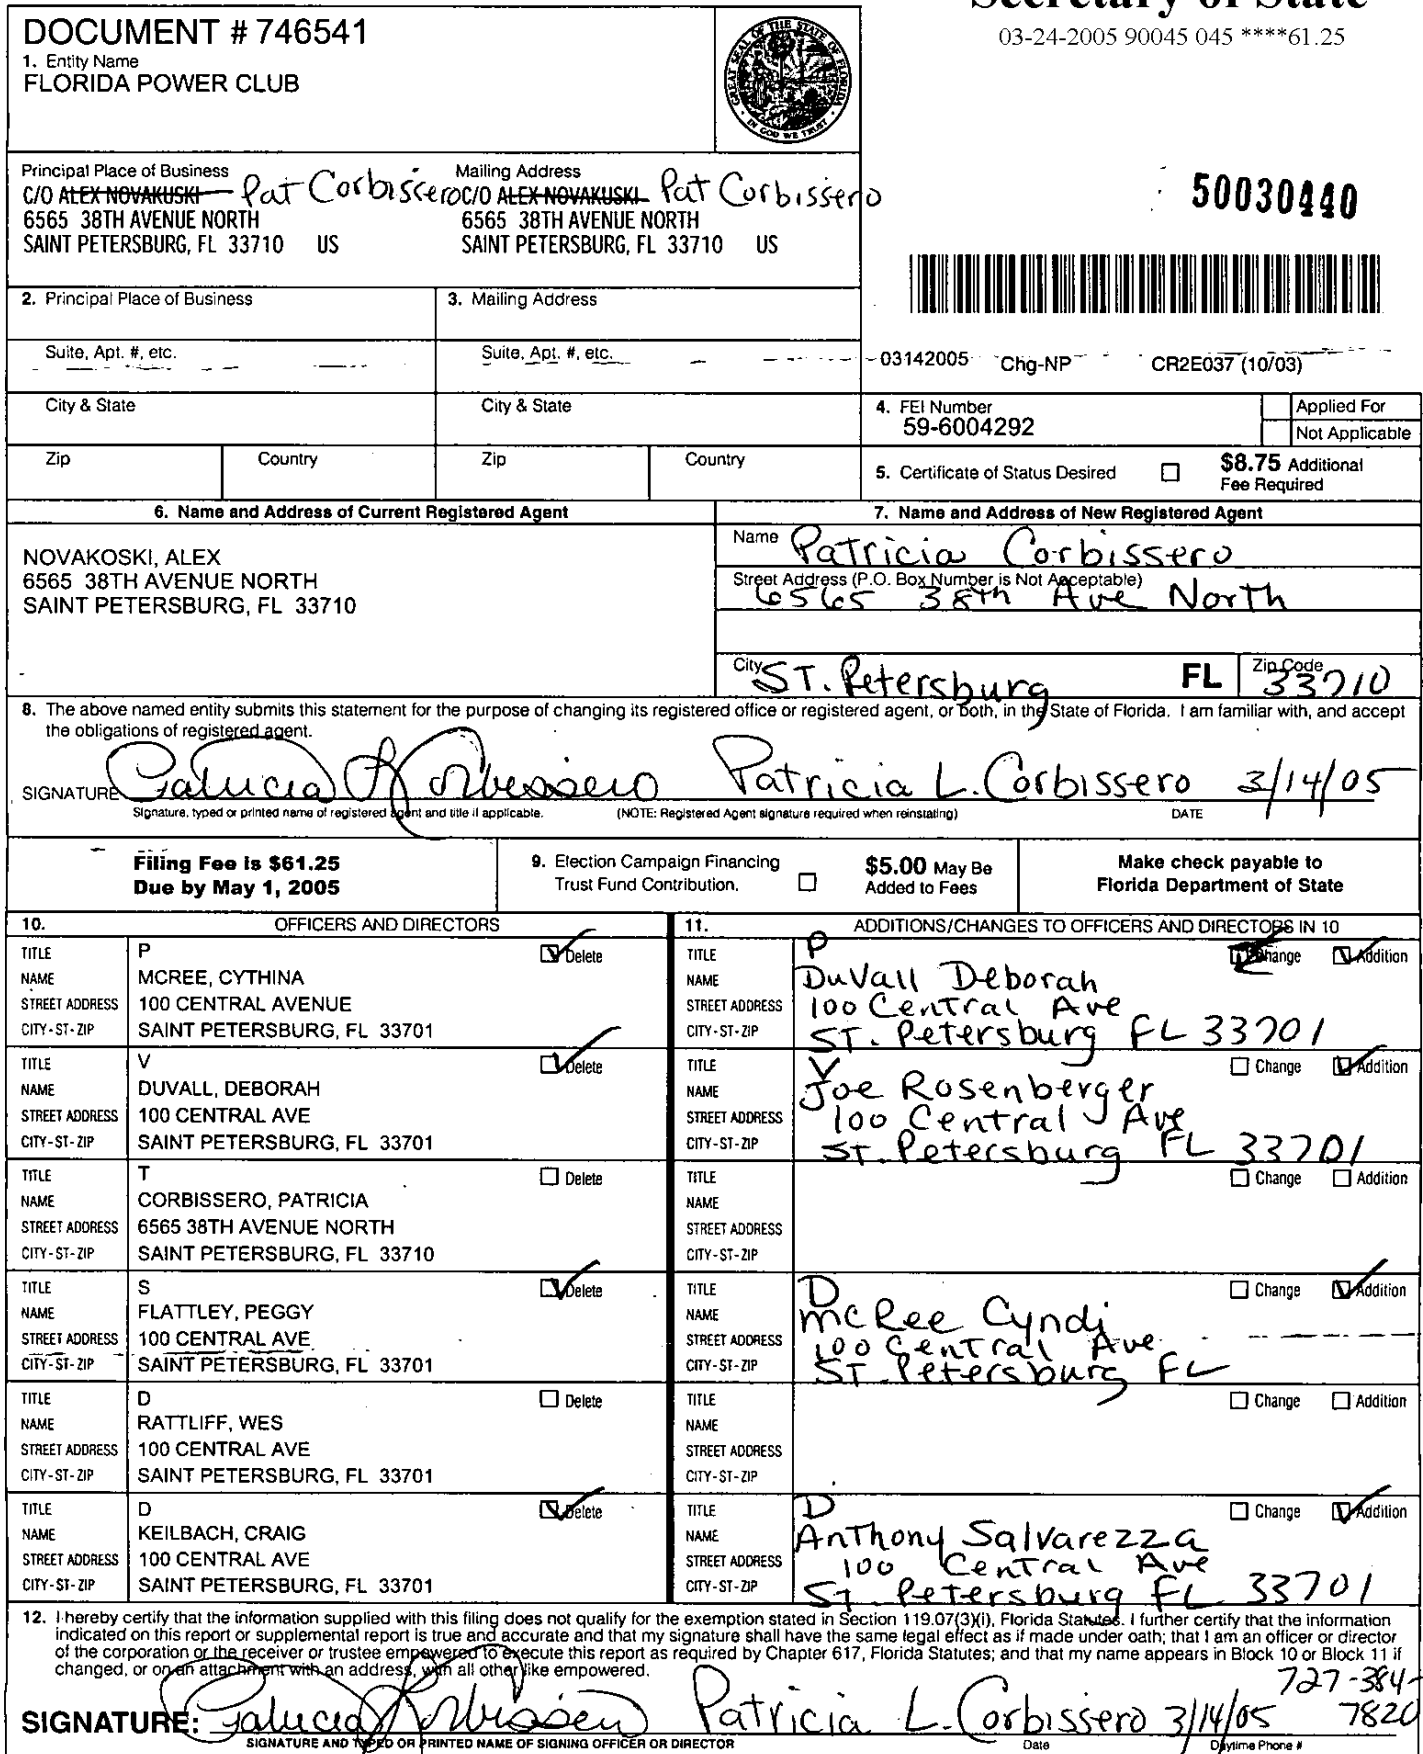 Secretary of State
DOCUMENT # 746541
03-24-2005 90045 045 ****61.25
1. Entity Name
FLORIDA POWER CLUB
GREAT SEAL OF THE STATE OF FLORIDA
IN GOD WE TRUST
Principal Place of Business
C/O ALEX NOVAKUSKI Pat Corbissero
6565 38TH AVENUE NORTH
SAINT PETERSBURG, FL 33710 US
Mailing Address
C/O ALEX NOVAKUSKI Pat Corbissero
6565 38TH AVENUE NORTH
SAINT PETERSBURG, FL 33710 US
50030440
2. Principal Place of Business
3. Mailing Address
Suite, Apt. #, etc.
Suite, Apt. #, etc.
03142005 Chg-NP CR2E037 (10/03)
City & State
City & State
4. FEI Number
59-6004292
Applied For
Not Applicable
Zip Country Zip Country
5. Certificate of Status Desired
$8.75 Additional
Fee Required
6. Name and Address of Current Registered Agent
NOVAKOSKI, ALEX
6565 38TH AVENUE NORTH
SAINT PETERSBURG, FL 33710
7. Name and Address of New Registered Agent
Name Patricia Corbissero
Street Address (P.O. Box Number is Not Acceptable)
6565 38th Ave North
City ST. Petersburg FL Zip Code 33710
8. The above named entity submits this statement for the purpose of changing its registered office or registered agent, or both, in the State of Florida. I am familiar with, and accept
the obligations of registered agent.
SIGNATURE Patricia L Corbissero Patricia L. Corbissero 3/14/05
Signature, typed or printed name of registered agent and title if applicable. (NOTE: Registered Agent signature required when reinstating) DATE
Filing Fee is $61.25
Due by May 1, 2005
9. Election Campaign Financing
Trust Fund Contribution.
$5.00 May Be
Added to Fees
Make check payable to
Florida Department of State
10. OFFICERS AND DIRECTORS
TITLE P Delete
NAME MCREE, CYTHINA
STREET ADDRESS 100 CENTRAL AVENUE
CITY-ST-ZIP SAINT PETERSBURG, FL 33701
TITLE V Delete
NAME DUVALL, DEBORAH
STREET ADDRESS 100 CENTRAL AVE
CITY-ST-ZIP SAINT PETERSBURG, FL 33701
TITLE T Delete
NAME CORBISSERO, PATRICIA
STREET ADDRESS 6565 38TH AVENUE NORTH
CITY-ST-ZIP SAINT PETERSBURG, FL 33710
TITLE S Delete
NAME FLATTLEY, PEGGY
STREET ADDRESS 100 CENTRAL AVE
CITY-ST-ZIP SAINT PETERSBURG, FL 33701
TITLE D Delete
NAME RATTLIFF, WES
STREET ADDRESS 100 CENTRAL AVE
CITY-ST-ZIP SAINT PETERSBURG, FL 33701
TITLE D Delete
NAME KEILBACH, CRAIG
STREET ADDRESS 100 CENTRAL AVE
CITY-ST-ZIP SAINT PETERSBURG, FL 33701
11. ADDITIONS/CHANGES TO OFFICERS AND DIRECTORS IN 10
TITLE P Change Addition
NAME DuVall Deborah
STREET ADDRESS 100 Central Ave
CITY-ST-ZIP ST. Petersburg FL 33701
TITLE V Change Addition
NAME Joe Rosenberger
STREET ADDRESS 100 Central Ave
CITY-ST-ZIP ST. Petersburg FL 33701
TITLE Change Addition
NAME
STREET ADDRESS
CITY-ST-ZIP
TITLE D Change Addition
NAME McRee Cyndi
STREET ADDRESS 100 Central Ave
CITY-ST-ZIP ST. Petersburg FL
TITLE Change Addition
NAME
STREET ADDRESS
CITY-ST-ZIP
TITLE D Change Addition
NAME Anthony Salvarezza
STREET ADDRESS 100 Central Ave
CITY-ST-ZIP ST. Petersburg FL 33701
12. I hereby certify that the information supplied with this filing does not qualify for the exemption stated in Section 119.07(3)(i), Florida Statutes. I further certify that the information
indicated on this report or supplemental report is true and accurate and that my signature shall have the same legal effect as if made under oath; that I am an officer or director
of the corporation or the receiver or trustee empowered to execute this report as required by Chapter 617, Florida Statutes; and that my name appears in Block 10 or Block 11 if
changed, or on an attachment with an address, with all other like empowered.
SIGNATURE: Patricia L Corbissero Patricia L. Corbissero 3/14/05 727-384-7820
SIGNATURE AND TYPED OR PRINTED NAME OF SIGNING OFFICER OR DIRECTOR Date Daytime Phone #